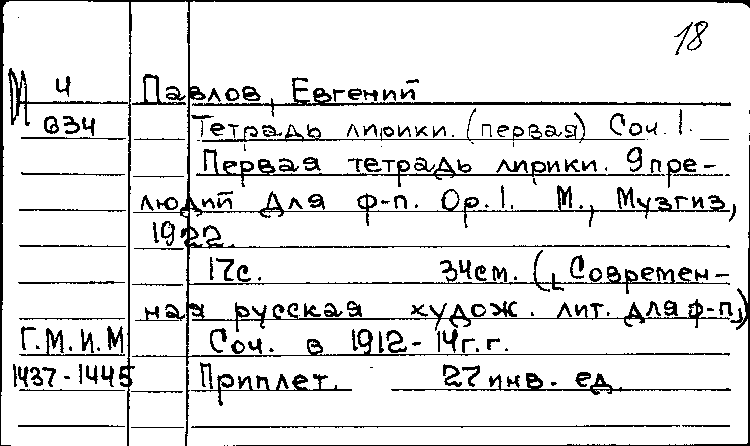 18
М Ч Павлов, Евгений
В34 Тетрадь лирики. (первая) Соч. 1.
Первая тетрадь лирики. 9 пре-
людий для ф-п. Op. 1. М., Музгиз,
1922.
17с. 34см. (Современ-
ная русская худож. лит. для ф-п.)
Г.М.И.М Соч. в 1912-14г.г.
1437-1445 Приплет. 27 инв. ед.